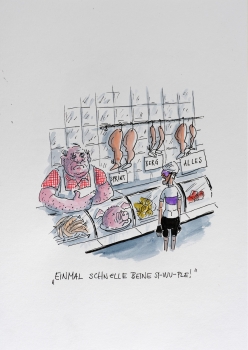 SPRINT
BERG
ALLES
„EINMAL SCHNELLE BEINE SI-WU-PLE!"